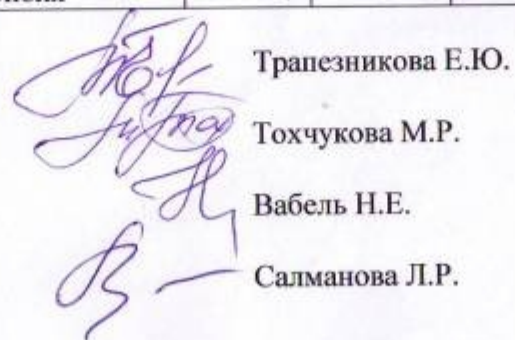 Трапезникова Е.Ю.
Тохчукова М.Р.
Вабель Н.Е.
Салманова Л.Р.